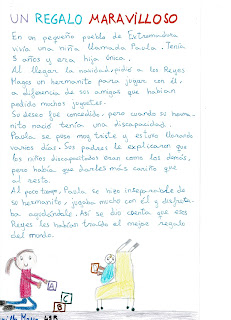 UN REGALO MARAVILLOSO
En un pequeño pueblo de Extremadura
vivía una niña llamada Paula. Tenía
5 años y era hija única.
Al llegar la navidad pidió a los Reyes
Magos un hermanito para jugar con él,
a diferencia de sus amigas que habían
pedido muchos juguetes.
Su deseo fué concedido, pero cuando su herma-
nito nació tenía una discapacidad.
Paula se puso muy triste y estuvo llorando
varios días. Sus padres le explicaron que
los niños discapacitados eran como los demás,
pero había que darles más cariño que
al resto.
Al poco tiempo, Paula se hizo inseparable de
su hermanito, jugaba mucho con él y disfruta-
ba ayudándole. Así se dio cuenta que esos
Reyes les habían traído el mejor regalo
del mundo.
A
B
C